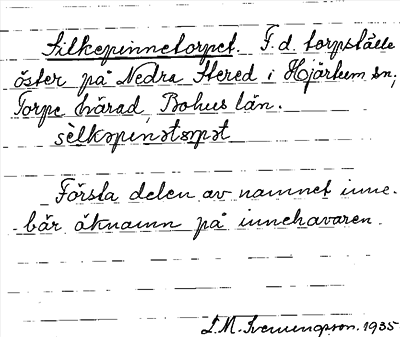 Silkepinnetorpet. F.d. torpställe
öster på Nedra Stered i Hjärtum sn;
Torpe härad, Bohus län.
sèlkəpinətɷrpət
Första delen av namnet inne-
bär öknamn på innehavaren.
L.M. Svenungsson. 1935